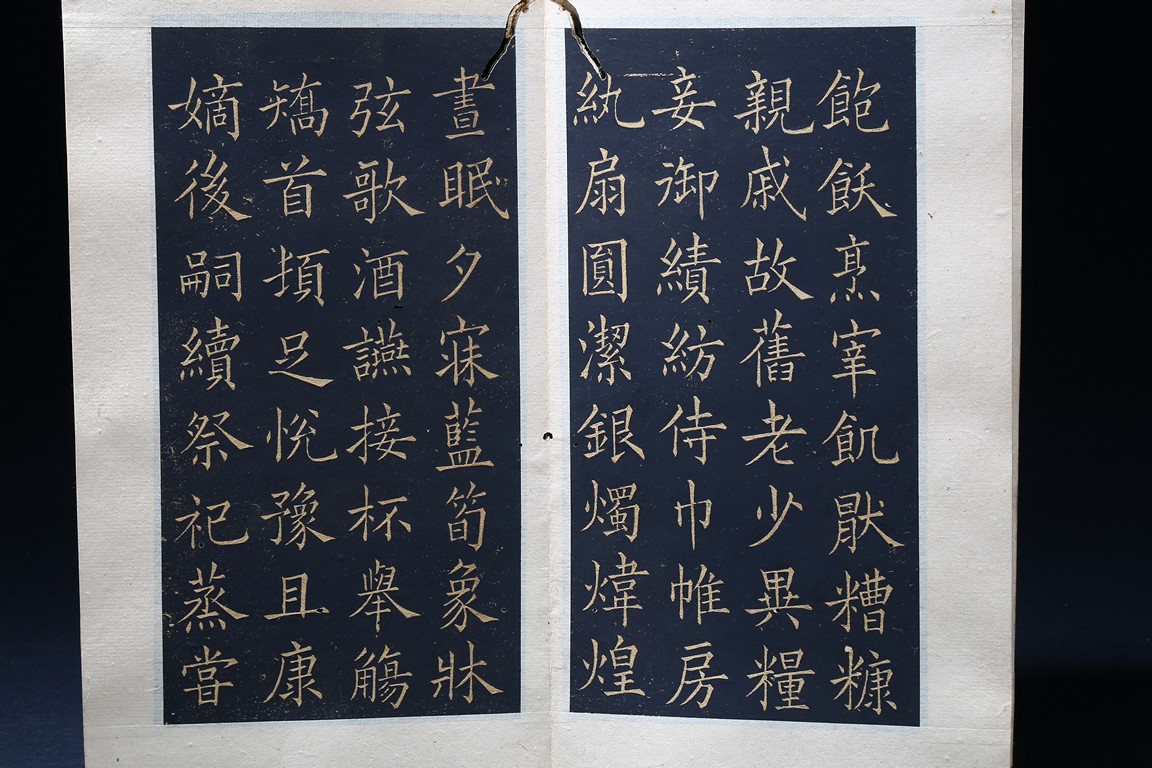 飽飫烹宰飢厭糟糠
親戚故舊老少異糧
妾御績紡侍巾帷房
紈扇圓潔銀燭煒煌
晝眠夕寐藍筍象牀
弦歌酒讌接杯舉觴
矯首頓足悅豫且康
嫡後嗣續祭祀蒸嘗